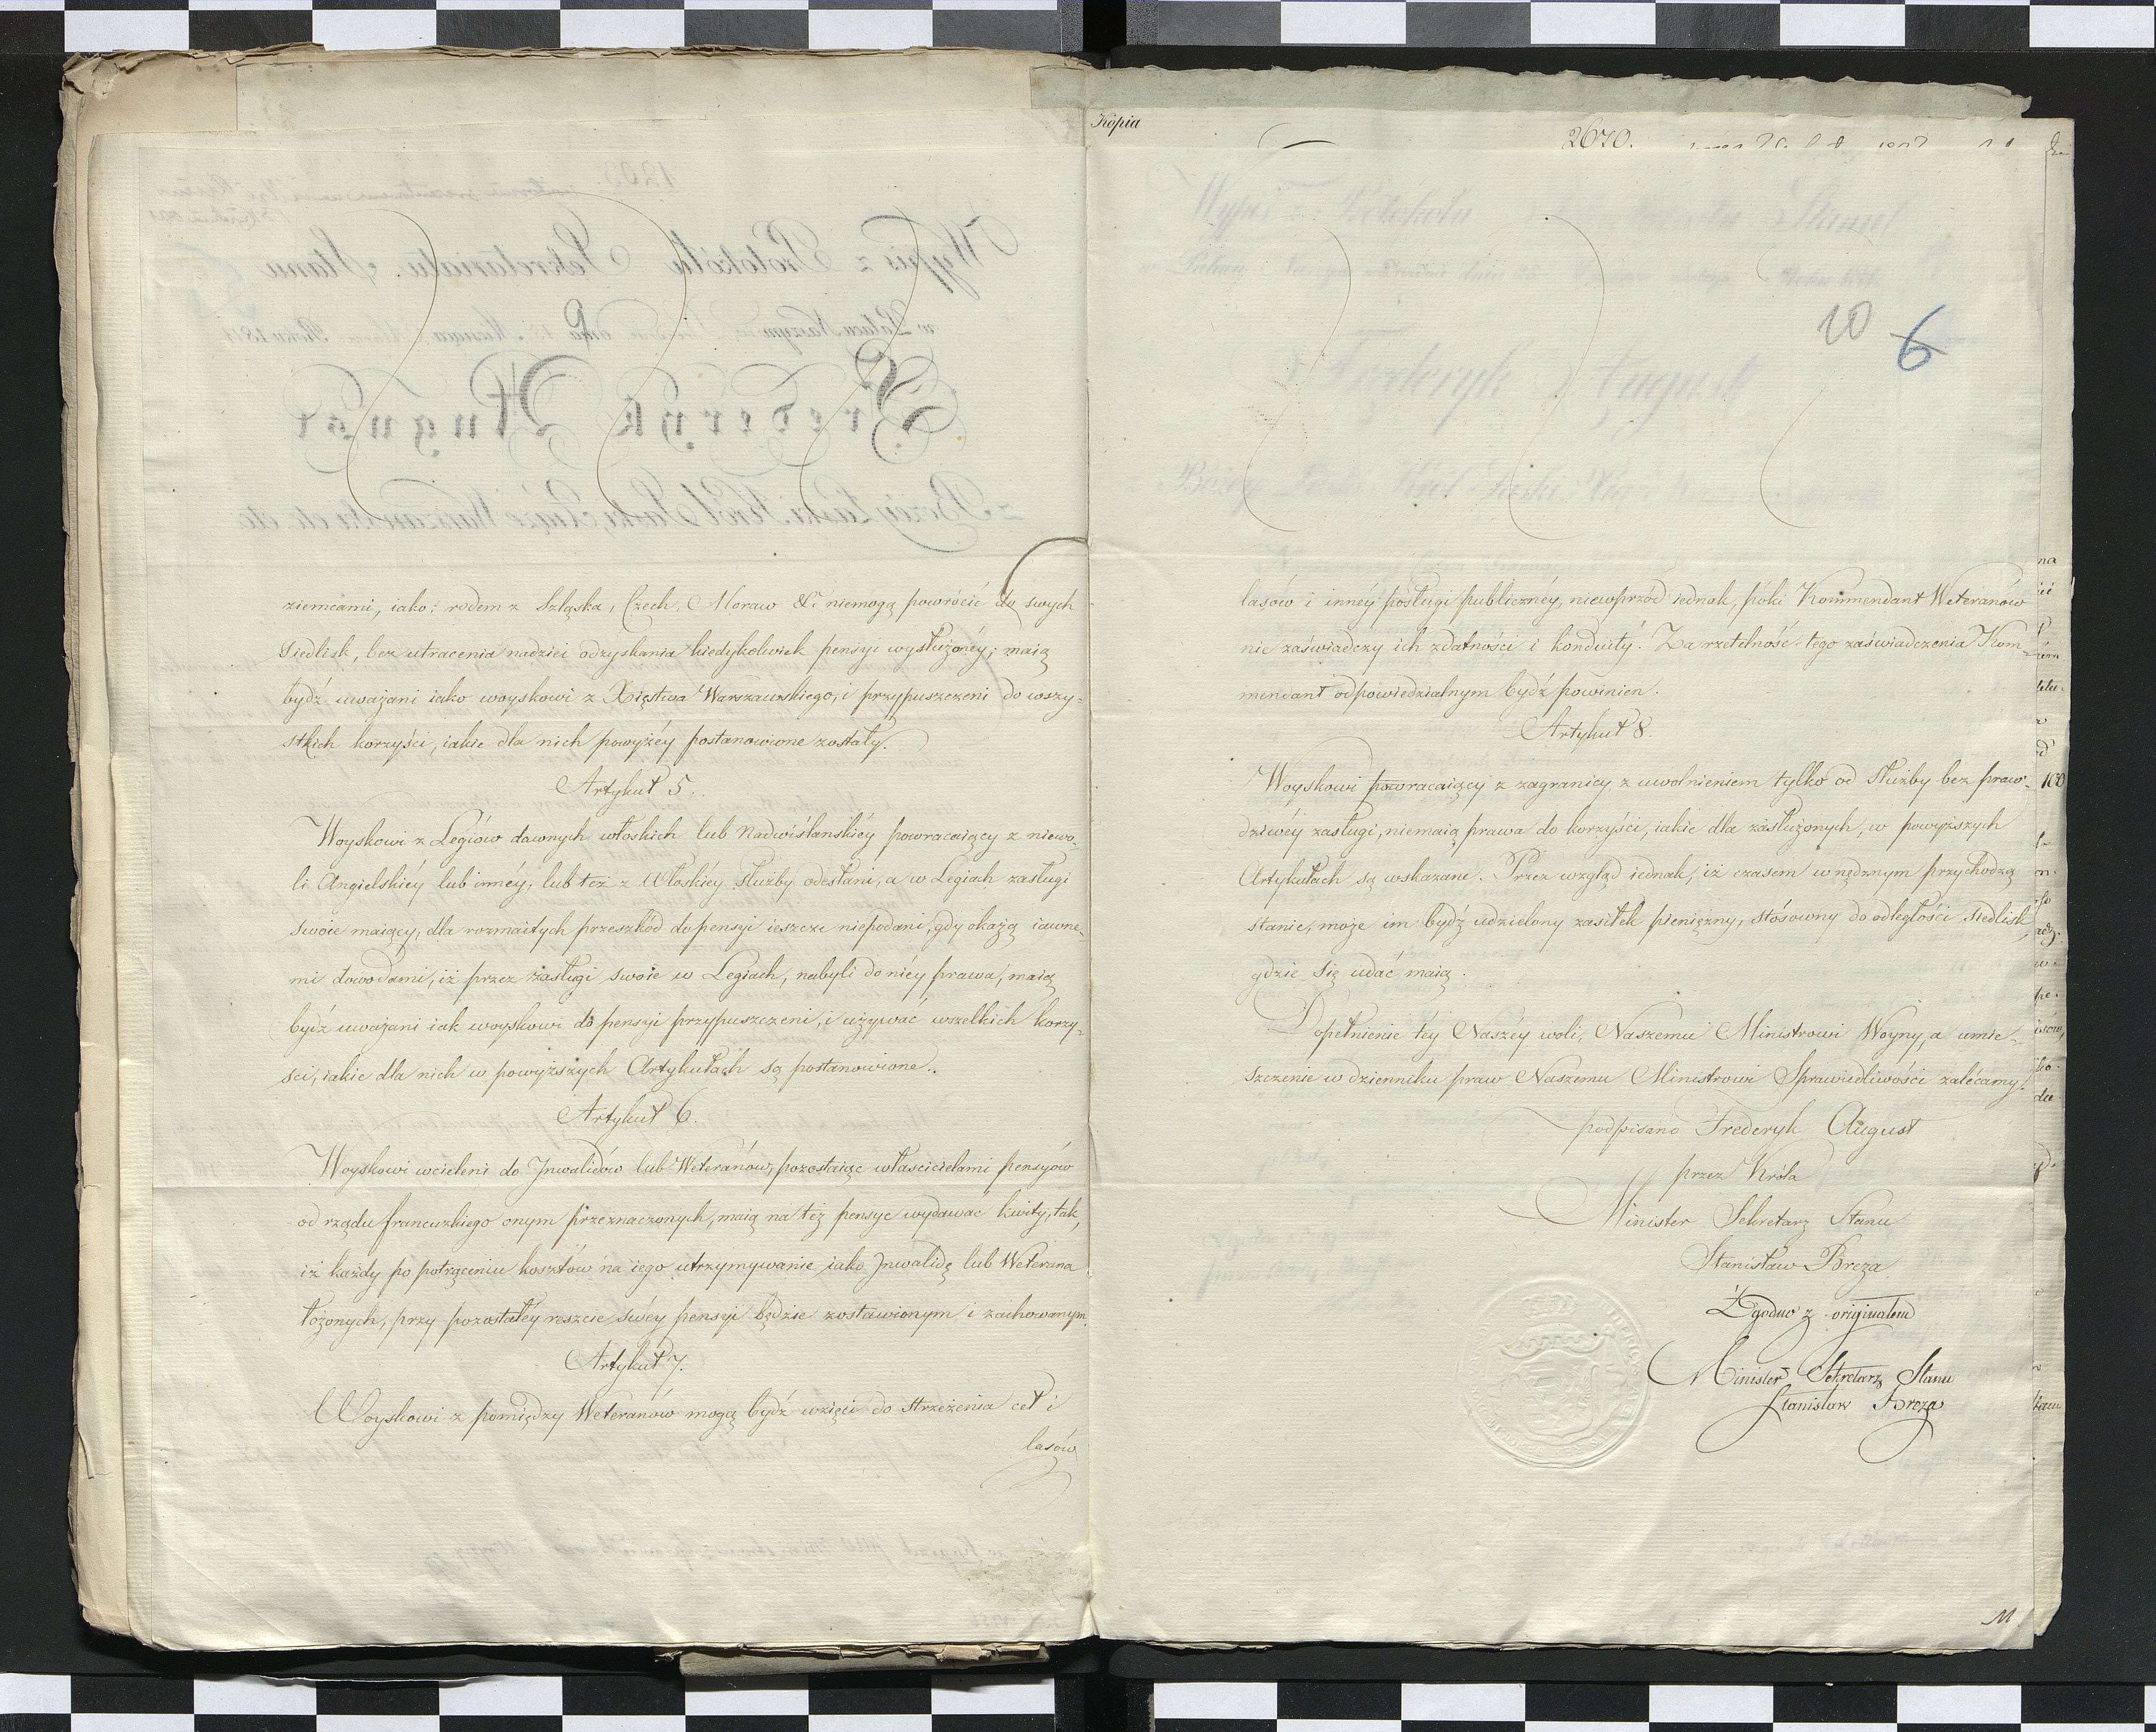 ziemcami, iako: rodem z Szląska, Czech, Moraw &c niemogą powrócić do swych
Siedlisk, bez utracenia nadziei odzyskania kiedykolwiek pensyi wysłużonéy; maią
bydź uważani iako woyskowi z Xięstwa Warszawskiego, i przypuszczeni do wszy-
stkich korzyści, iakie dla nich powyżéy postanowione zostały.
Artykuł 5.
Woyskowi z Legiów dawnych włoskich lub Nadwiślańskiéy powracaiący z niewo-
li Angielskiéy lub innéy, lub też z Włoskiéy służby odesłani, a w Legiach zasługi
swoie maiący, dla rozmaitych przeszkód do pensyi ieszcze niepodani, gdy okażą iawne-
mi dowodami, iż przez zasługi swoie w Legiach, nabyli do niéy prawa, maią
bydź uważani iak woyskowi do pensyi przypuszczeni, i używać wszelkich korzy-
ści, iakie dla nich w powyższych Artykułach są postanowione.
Artykuł 6.
Woyskowi wcieleni do Inwalidów lub Weteranów, pozostaiąc właścicielami pensyów
od rządu francuzkiego onym przeznaczonych, maią na też pensye wydawać kwity, tak,
iż każdy po potrąceniu kosztów na iego utrzymywanie iako Inwalidę lub Weterana
łożonych, przy pozostałéy reszcie swéy pensyi będzie zostawionym i zachowanym.
Artykuł 7.
Woyskowi z pomiędzy Weteranów mogą bydź wzięci do strzeżenia ceł i
lasów
Kopia
2670.
10 6
lasów i innéy posługi publicznéy, niewprzód iednak, póki Kommendant Weteranów
nie zaświadczy ich zdatności i konduity. Za rzetelność tego zaświadczenia Kom-
mendant odpowiedzialnym bydź powinien.
Artykuł 8.
Woyskowi powracaiący z zagranicy z uwolnieniem tylko od służby bez praw-
dziwéy zasługi, niemaią prawa do korzyści, iakie dla zasłużonych, w powyższych
Artykułach są wskazane. Przez wzgląd iednak, iż czasem w nędznym przychodzą
stanie, może im bydź udzielony zasiłek pieniężny, stósowny do odległości siedlisk,
gdzie się udać maią.
Dopełnienie téy Naszéy woli, Naszemu Ministrowi Woyny, a umie-
szczenie w dzienniku praw Naszemu Ministrowi Sprawiedliwości zalécamy.
podpisano Frederyk August
przez Króla
Minister Sekretarz Stanu
Stanisław Breza
Zgodno z originałem
Minister Sekretarz Stanu
Stanisław Breza